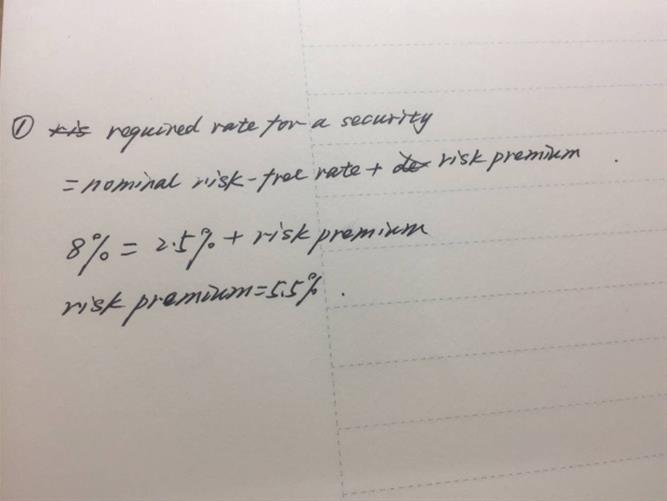 ① required rate for a security
= nominal risk-free rate + risk premium.
8% = 2.5% + risk premium
risk premium = 5.5%.